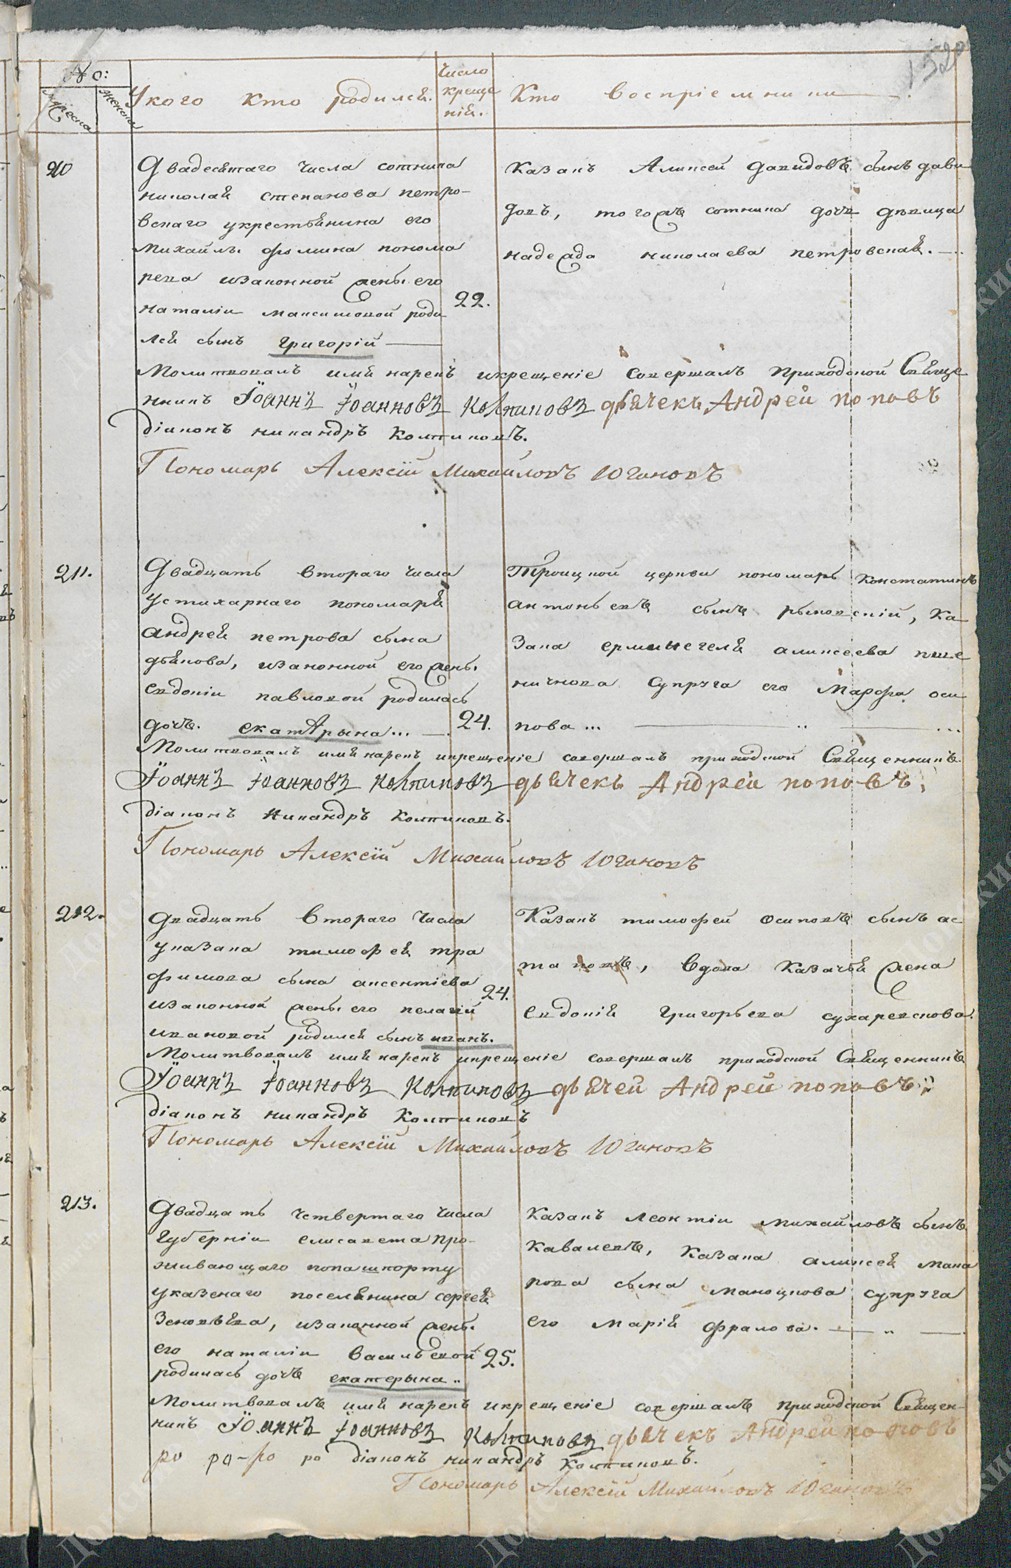 №:
Число
У кого кто родился.
креще
ния.
Кто восприемники
Двадесятаго числа сотника
николая степанова петро-
вскаго у крестьянина его
михайлы фомина понома
рева и законной жены его
наталiи максимовой роди
лся сынъ григорiй
22.
Казакъ Алексей давидовъ сынъ дави
довъ, того же сотника дочь девица
надежда николаева петровская.
Молитвовалъ имя нарекъ и крещенiе совершалъ приходской Свяще
нникъ Iоаннъ Iоанновъ Колпиковъ дьячекъ Андрей поповъ
дiаконъ никандръ Колпиковъ.
Пономарь Алексiй Михайловъ Югановъ
211.
Двадцать втораго числа
устихарнаго пономаря
андрея петрова сына
дьякова, и законной его жены
евдокiи павловой родилась
дочь. екатярына...
24.
Троицкой церкви пономарь констатинъ
антоньевъ сынъ рыковскiй, ка-
зака алексеева пше
ничнова супруга его Марфа оси
пова...
Молитвовалъ имя нарекъ и крещенiе совершалъ приходской Священникъ
Iоаннъ Iоанновъ Колпиковъ дьячекъ Андрей поповъ;
дiаконъ никандръ Колпиковъ.
Пономарь Алексiй Михайловъ Югановъ
212.
Двадцать втораго числа
у казака тимофея тра
фимова сына аксентiева
и законной жены его пелагеи
ивановой родился сынъ иванъ.
24.
Казакъ тимофей осиповъ сынъ ас
таховъ, вдова казачья жена
Евдокiя Григорьева сухаревскова
Молитвовалъ имя нарекъ и крещенiе совершалъ приходской Священникъ
Iоаннъ Iоанновъ Колпиковъ дьячей Андрей поповъ;
дiаконъ никандръ Колпиковъ
Пономарь Алексiй Михайловъ Югановъ
213.
Двадцать четвертаго числа
губернiи елисавета про-
живающаго по пашпорту
указенаго поселянина сергея
Зеновьева, и законной жены
его наталiи Васильевой
родилась дочь екатерына..
25.
Казакъ леонтiй михайловъ сынъ
Ковалевъ, казака алексея мака
рова сына супруга
его марiя фралова.
Молитвовалъ имя нарекъ и крещенiе совершалъ приходской Священ
никъ Iоаннъ Iоанновъ Колпиковъ дьячекъ Андрей поповъ
дiаконъ никандръ Колпиковъ.
Пономарь Алексiй Михайловъ Югановъ